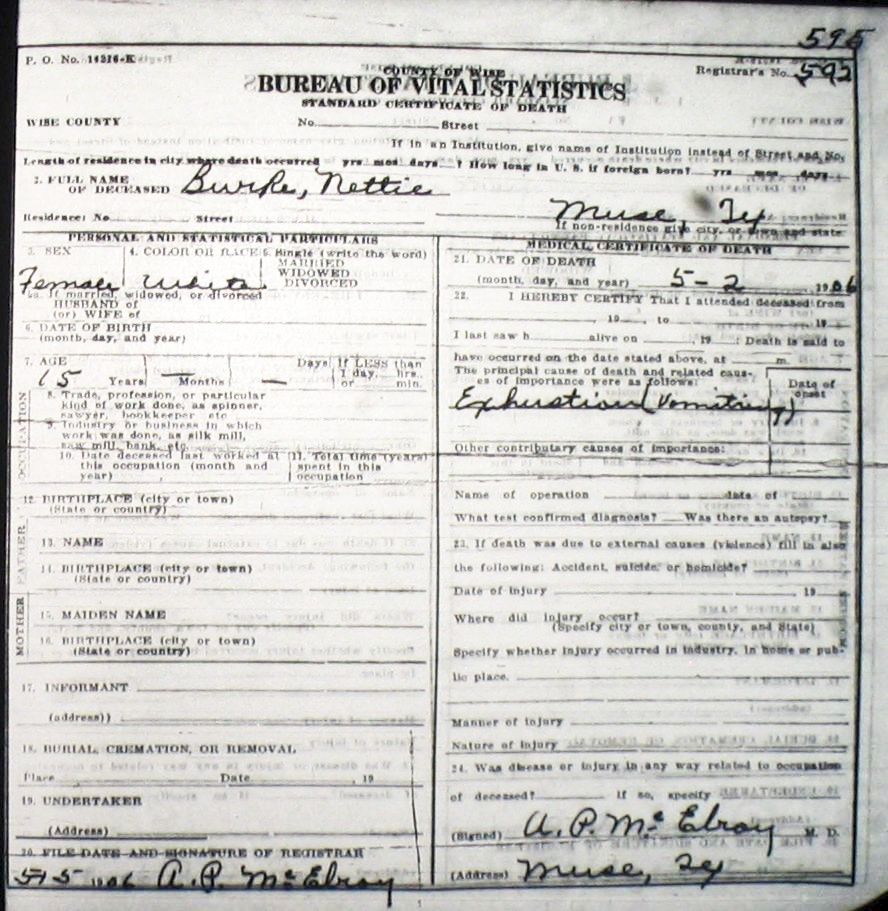 595
P. O. No. 14216-K
Registrar's No. 592
COUNTY OF WISE
BUREAU OF VITAL STATISTICS
STANDARD CERTIFICATE OF DEATH
WISE COUNTY No. Street
If in an Institution, give name of Institution instead of Street and No.
Length of residence in city where death occurred yrs mos days ? How long in U. S. if foreign born? yrs mos days
2. FULL NAME
OF DECEASED Burke, Nettie
Residence: No Street Muse, Tex
If non-residence give city, or town and state
PERSONAL AND STATISTICAL PARTICULARS
3. SEX 4. COLOR OR RACE 5. Single (write the word)
MARRIED
WIDOWED
DIVORCED
Female White
5a. If married, widowed, or divorced
HUSBAND of
(or) WIFE of
6. DATE OF BIRTH
(month, day, and year)
7. AGE Days If LESS than
15 Years — Months — 1 day, hrs.
or min.
OCCUPATION
8. Trade, profession, or particular
kind of work done, as spinner,
sawyer, bookkeeper etc
9. Industry or business in which
work was done, as silk mill,
saw mill, bank, etc.
10. Date deceased last worked at
this occupation (month and
year)
11. Total time (years)
spent in this
occupation
12. BIRTHPLACE (city or town)
(State or country)
FATHER
13. NAME
14. BIRTHPLACE (city or town)
(State or country)
MOTHER
15. MAIDEN NAME
16. BIRTHPLACE (city or town)
(State or country)
17. INFORMANT
(address))
18. BURIAL, CREMATION, OR REMOVAL
Place Date , 19
19. UNDERTAKER
(Address)
20. FILE DATE AND SIGNATURE OF REGISTRAR
A. P. McElroy
MEDICAL CERTIFICATE OF DEATH
21. DATE OF DEATH
(month, day, and year) 5-2 1906
22. I HEREBY CERTIFY That I attended deceased from
, 19 , to 19
I last saw h alive on , 19 Death is said to
have occurred on the date stated above, at m.
The principal cause of death and related caus-
es of importance were as follows:
Date of
onset
Exhustion (Vomitring)
Other contributary causes of importance:
Name of operation date of
What test confirmed diagnosis? Was there an autopsy?
23. If death was due to external causes (violence) fill in also
the following: Accident, suicide, or homicide?
Date of injury , 19
Where did injury occur?
(Specify city or town, county, and State)
Specify whether injury occurred in industry, in home or pub-
lic place.
Manner of injury
Nature of injury
24. Was disease or injury in any way related to occupation
of deceased? If so, specify
(Signed) A. P. McElroy M. D.
(Address) Muse, Tex